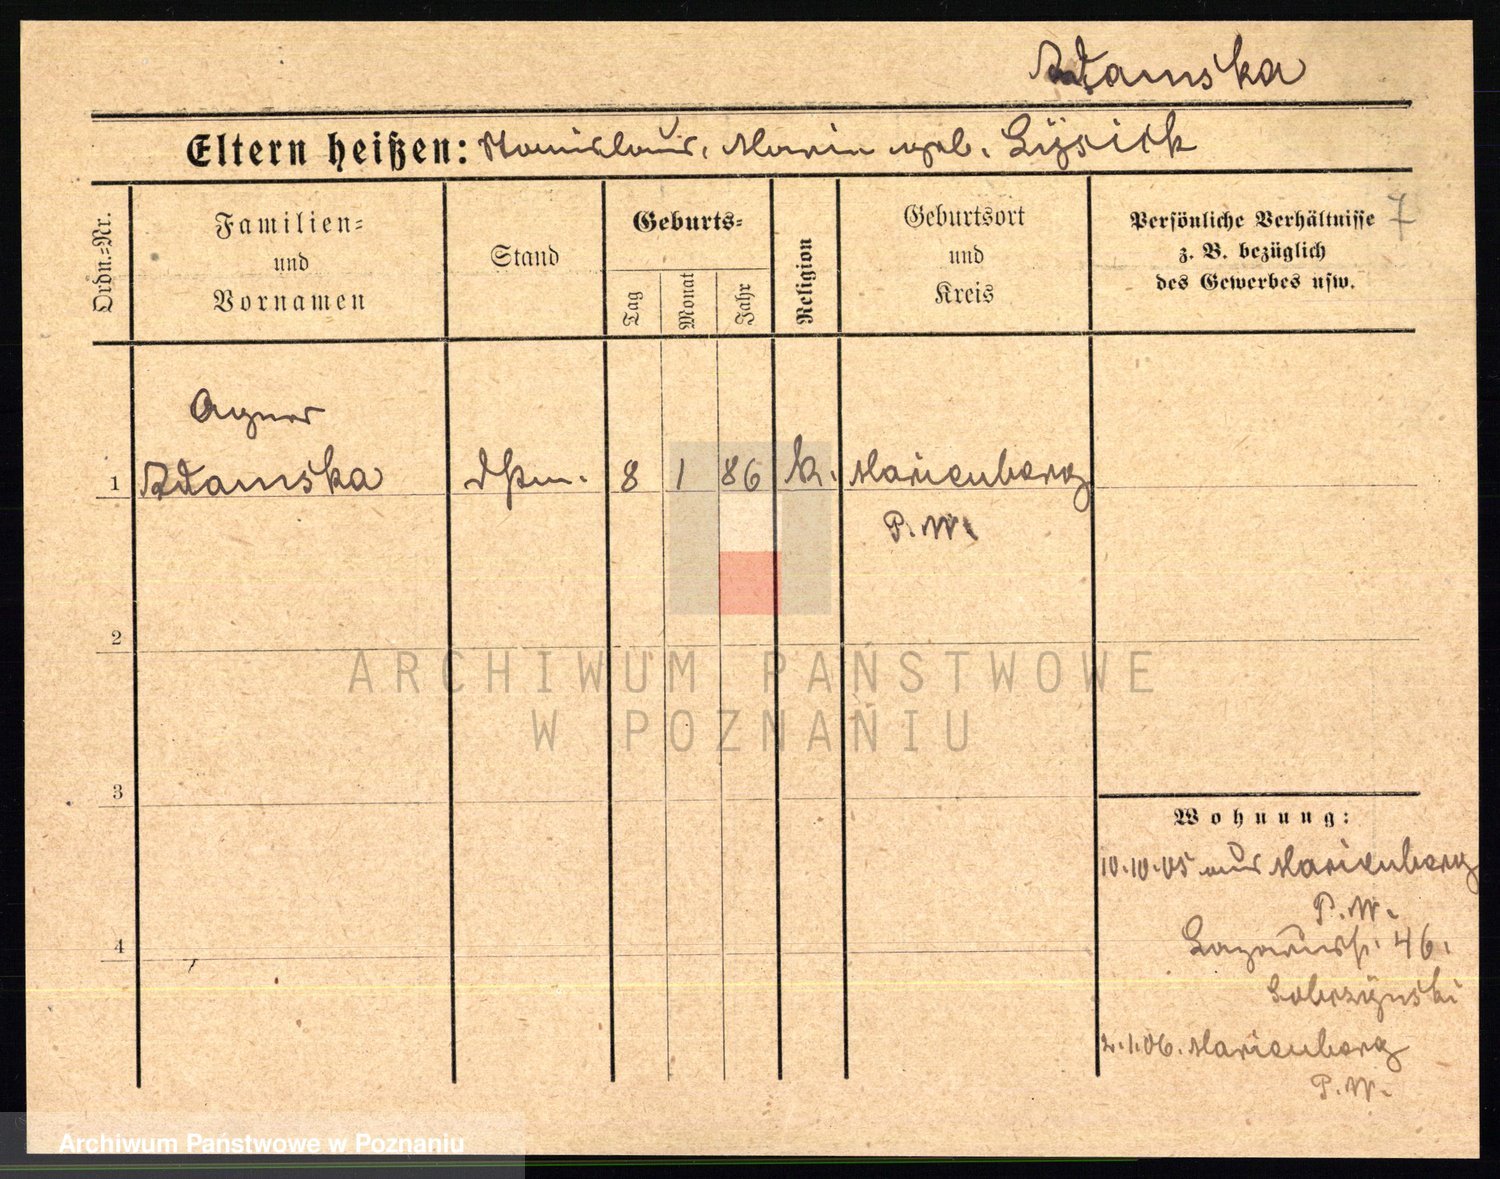 Adamska
Eltern heißen: Stanislaus, Maria geb. Lÿsick
Ordn.=Nr.
Familien=
und
Vornamen
Stand
Geburts=
Tag
Monat
Jahr
Religion
Geburtsort
und
Kreis
Persönliche Verhältnisse
z. B. bezüglich
des Gewerbes usw.
7
Agnes
1 Adamska 8 1 86 k. Marienberg
P. W.
2
3
4
Wohnung:
10.10.05 aus Marienberg
P. W.
Lazarusstr. 46.
2.1.06. Marienberg
P. W.
ARCHIWUM PAŃSTWOWE
W POZNANIU
Archiwum Państwowe w Poznaniu